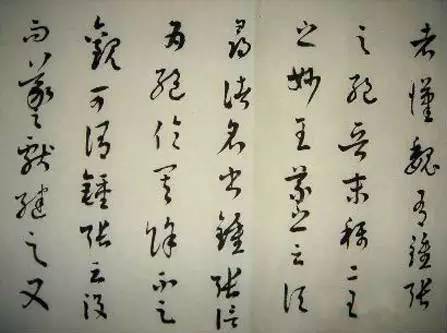 者漢魏有鍾張
之絕晉末稱二王
之妙王羲之云頃
尋諸名書鍾張信
為絕倫其餘不足
觀可謂鍾張云沒
而羲獻繼之又